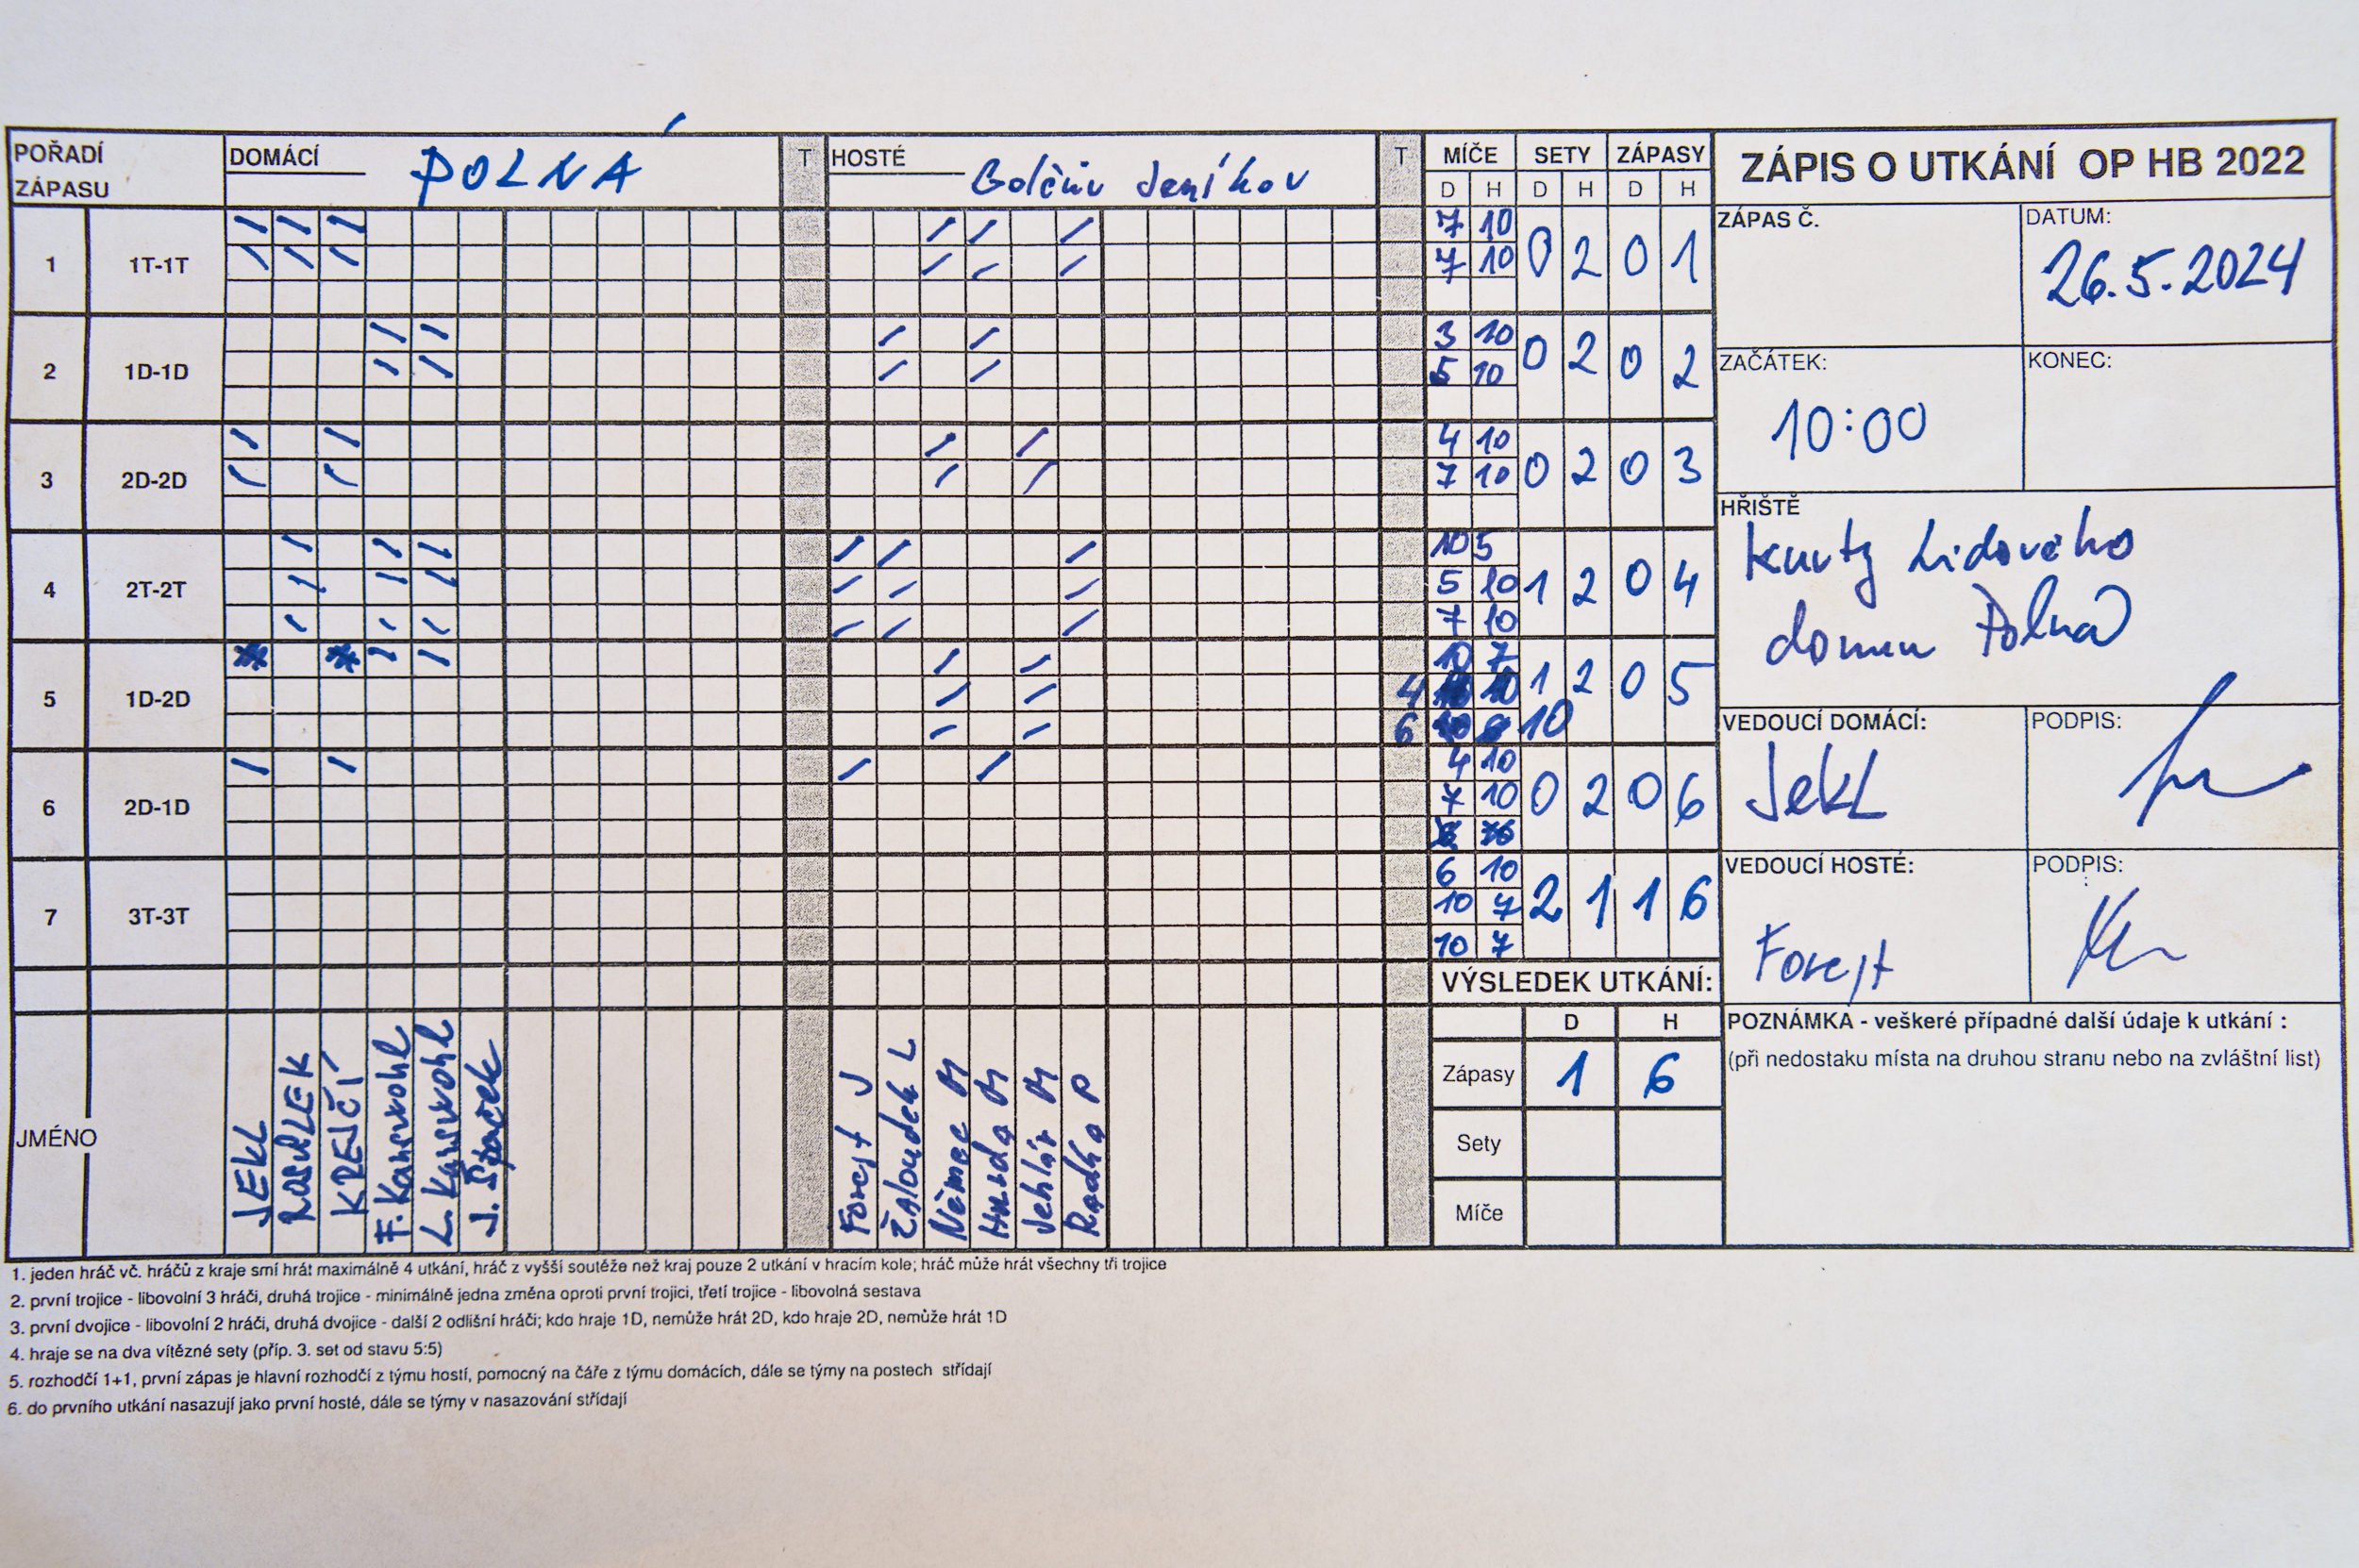 POŘADÍ ZÁPASU DOMÁCÍ POLNÁ T HOSTÉ Golčův Jeníkov T MÍČE SETY ZÁPASY ZÁPIS O UTKÁNÍ OP HB 2022
D H D H D H
1 1T-1T 7 10 0 2 0 1
7 10
ZÁPAS Č. DATUM: 26.5.2024
2 1D-1D 3 10 0 2 0 2
5 10
ZAČÁTEK: 10:00 KONEC:
3 2D-2D 4 10 0 2 0 3
7 10
HŘIŠTĚ
Kurty Lidového
domu Polná
4 2T-2T 10 5 1 2 0 4
5 10
7 10
5 1D-2D 10 7 1 2 0 5
4 10
6 10
VEDOUCÍ DOMÁCÍ: Jekl PODPIS:
6 2D-1D 4 10 0 2 0 6
7 10
VEDOUCÍ HOSTÉ: Forejt PODPIS:
7 3T-3T 6 10 2 1 1 6
10 7
10 7
VÝSLEDEK UTKÁNÍ:
D H
Zápasy 1 6
Sety
Míče
POZNÁMKA - veškeré případné další údaje k utkání :
(při nedostaku místa na druhou stranu nebo na zvláštní list)
JMÉNO
JEKL
KREJČÍ
F. Kansrohl
L. Kansrohl
J. Špaček
Forejt J
Žaloudek L
Němec M
Hruda M
Jehlář M
Radka P
1. jeden hráč vč. hráčů z kraje smí hrát maximálně 4 utkání, hráč z vyšší soutěže než kraj pouze 2 utkání v hracím kole; hráč může hrát všechny tři trojice
2. první trojice - libovolní 3 hráči, druhá trojice - minimálně jedna změna oproti první trojici, třetí trojice - libovolná sestava
3. první dvojice - libovolní 2 hráči, druhá dvojice - další 2 odlišní hráči; kdo hraje 1D, nemůže hrát 2D, kdo hraje 2D, nemůže hrát 1D
4. hraje se na dva vítězné sety (příp. 3. set od stavu 5:5)
5. rozhodčí 1+1, první zápas je hlavní rozhodčí z týmu hostí, pomocný na čáře z týmu domácích, dále se týmy na postech střídají
6. do prvního utkání nasazují jako první hosté, dále se týmy v nasazování střídají